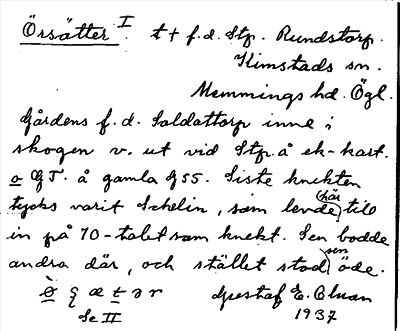 Örsätter I. t + f.d. Stp. Rundstorp.
Kimstads sn.
Memmings hd. Ögl.
Gårdens f. d. Soldattorp inne i
skogen v. ut vid Stp. å ek-kart.
o GT. å gamla GSS. Siste knekten
tycks varit Schelin, som levde här till
in på 70-talet som knekt. Sen bodde
andra där, och stället stod sen öde.
Gustaf E.
Se II
1937